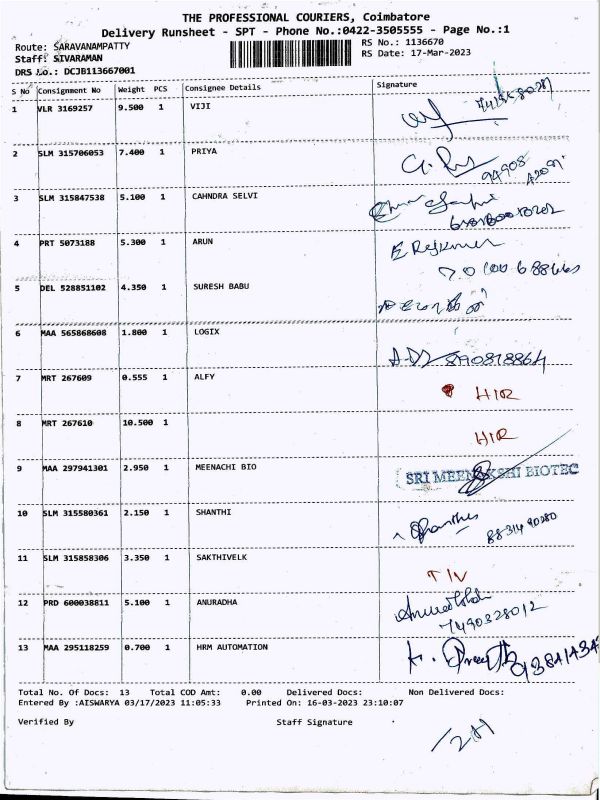 THE PROFESSIONAL COURIERS, Coimbatore
Delivery Runsheet - SPT - Phone No.:0422-3505555 - Page No.:1
Route: SARAVANAMPATTY RS No.: 1136670
Staff: SIVARAMAN RS Date: 17-Mar-2023
DRS No.: DCJB113667001
S No Consignment No Weight PCS Consignee Details Signature
1 VLR 3169257 9.500 1 VIJI
2 SLM 315706053 7.400 1 PRIYA
3 SLM 315847538 5.100 1 CAHNDRA SELVI
4 PRT 5073188 5.300 1 ARUN
5 DEL 528851102 4.350 1 SURESH BABU
6 MAA 565868608 1.800 1 LOGIX
7 MRT 267609 0.555 1 ALFY HIR
8 MRT 267610 10.500 1 HIR
9 MAA 297941301 2.950 1 MEENACHI BIO SRI MEENAKSHI BIOTEC
10 SLM 315580361 2.150 1 SHANTHI
11 SLM 315858306 3.350 1 SAKTHIVELK
12 PRD 600038811 5.100 1 ANURADHA
7490328012
13 MAA 295118259 0.700 1 HRM AUTOMATION
Total No. Of Docs: 13 Total COD Amt: 0.00 Delivered Docs: Non Delivered Docs:
Entered By :AISWARYA 03/17/2023 11:05:33 Printed On: 16-03-2023 23:10:07
Verified By Staff Signature